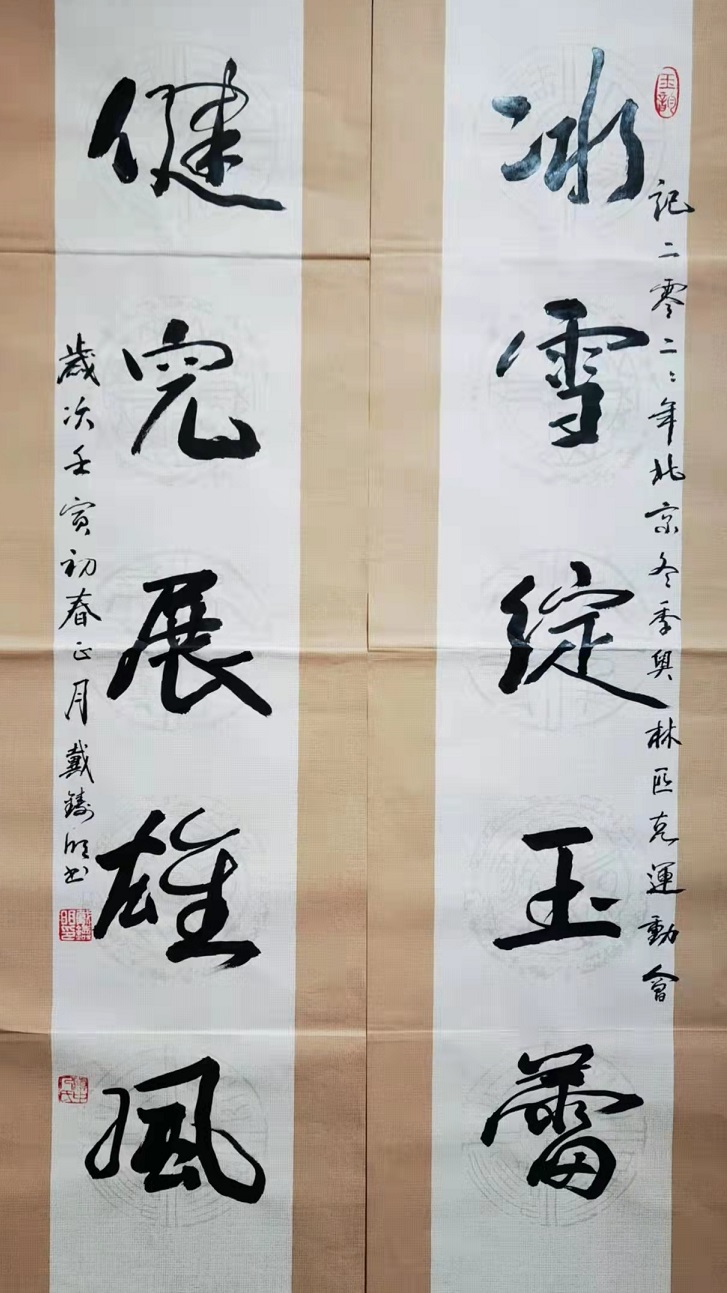 冰雪綻玉蕾
記二零二二年北京冬季奥林匹克運動會
健兒展雄風
歲次壬寅初春正月戴鑄明書